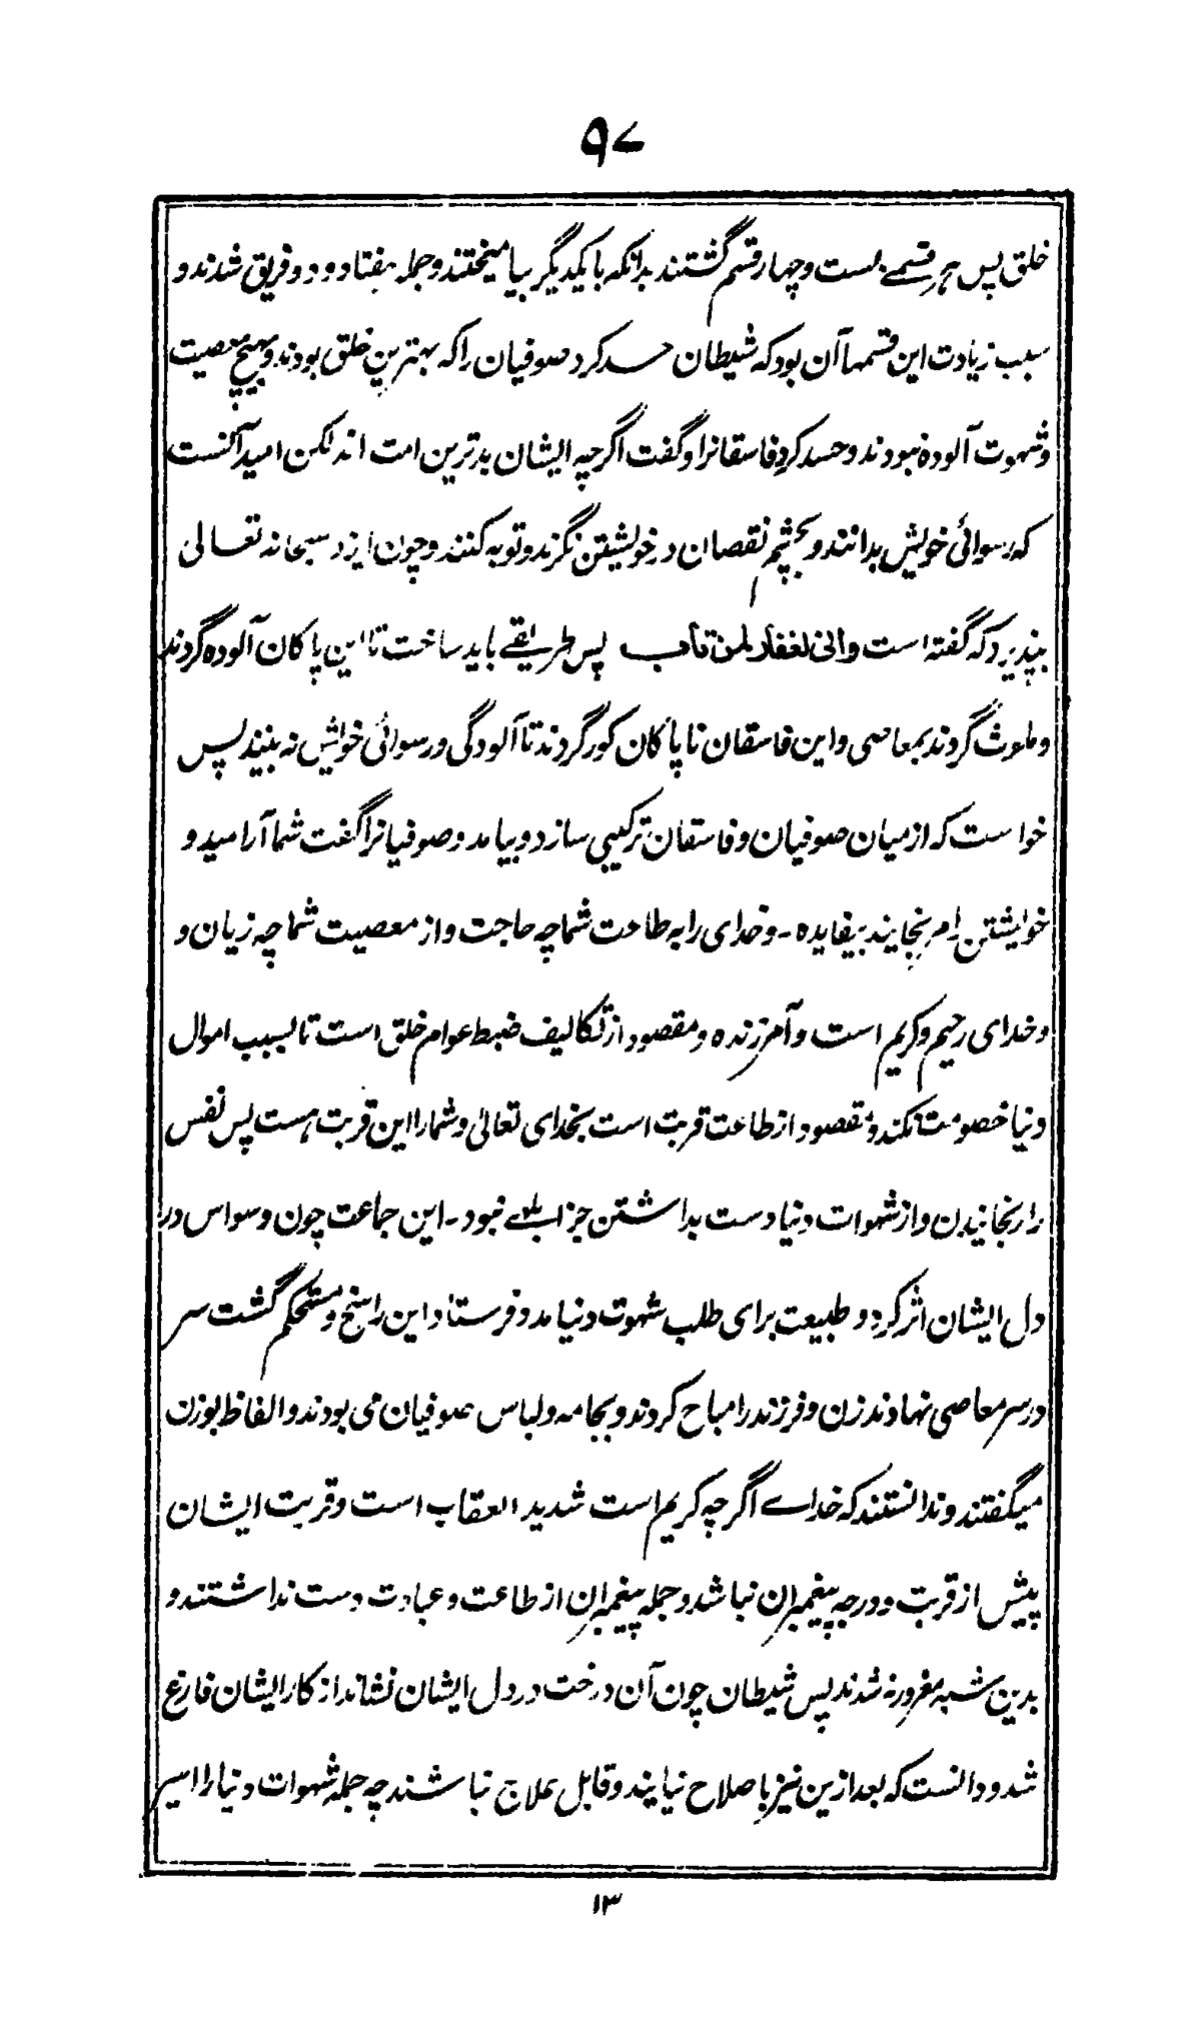 ۹۷
خلق پس هر قسمے بست و چهار قسم گشتند بدانکه با یکدیگر بیامیختند و جمله هفتاد و دو فریق شدند و
سبب زیادت این قسمها آن بود که شیطان حسد کرد صوفیان را که بهترین خلق بودند و بهیچ معصیت
و شهوت آلوده نبودند و حسد کرد فاسقانرا و گفت اگرچه ایشان بدترین امت اند لکن امید آنست
که رسوائی خویش بدانند و بچشم نقصان در خویشتن نگرند و توبه کنند و چون ایزد سبحانه تعالی
بپذیرد که گفته است وانی لغفار لمن تاب پس طریقے باید ساخت تا این پاکان آلوده گردند
و ملوث گردند بمعاصی و این فاسقان ناپاکان کور گردند تا آلودگی و رسوائی خویش نه بینند پس
خواست که از میان صوفیان و فاسقان ترکیبی سازد و بیامد و صوفیانرا گفت شما آرامید و
خویشتن را مرنجانید بیفایده - و خدای را به طاعت شما چه حاجت و از معصیت شما چه زیان و
و خدای رحیم و کریم است و آمرزنده و مقصود از تکالیف ضبط عوام خلق است تا بسبب اموال
دنیا خصومت نکند و مقصود از طاعت قربت است بخدای تعالی و شما را این قربت هست پس نفس
را رنجانیدن و از شهوات دنیا دست بداشتن جز ابلهے نبود - این جماعت چون وسواس در
دل ایشان اثر کرد و طبیعت برای طلب شهوت دنیا مدد فرستاد این راسخ و مستحکم گشت سر
در سر معاصی نهادند زن و فرزند را مباح کردند و بجامه و لباس صوفیان می بودند و الفاظ بوزن
میگفتند و ندانستند که خداے اگرچه کریم است شدید العقاب است و قربت ایشان
پیش از قربت و درجه پیغمبران نباشد و جمله پیغمبران از طاعت و عبادت دست نداشتند و
بدین شبه مغرور نه شدند پس شیطان چون آن درخت در دل ایشان نشاند از کار ایشان فارغ
شد و دانست که بعد ازین نیز باصلاح نیایند و قابل علاج نباشند چه جمله شهوات دنیا را اسیر
۱۳